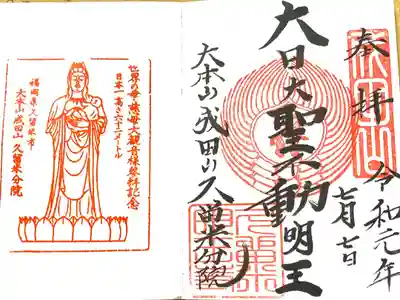 奉拝
令和元年
七月七日
大日大聖不動明王
大本山成田山久留米分院
世界の母・慈母大観音様参拝記念
日本一高さ六十二メートル
福岡県久留米市
大本山成田山 久留米分院